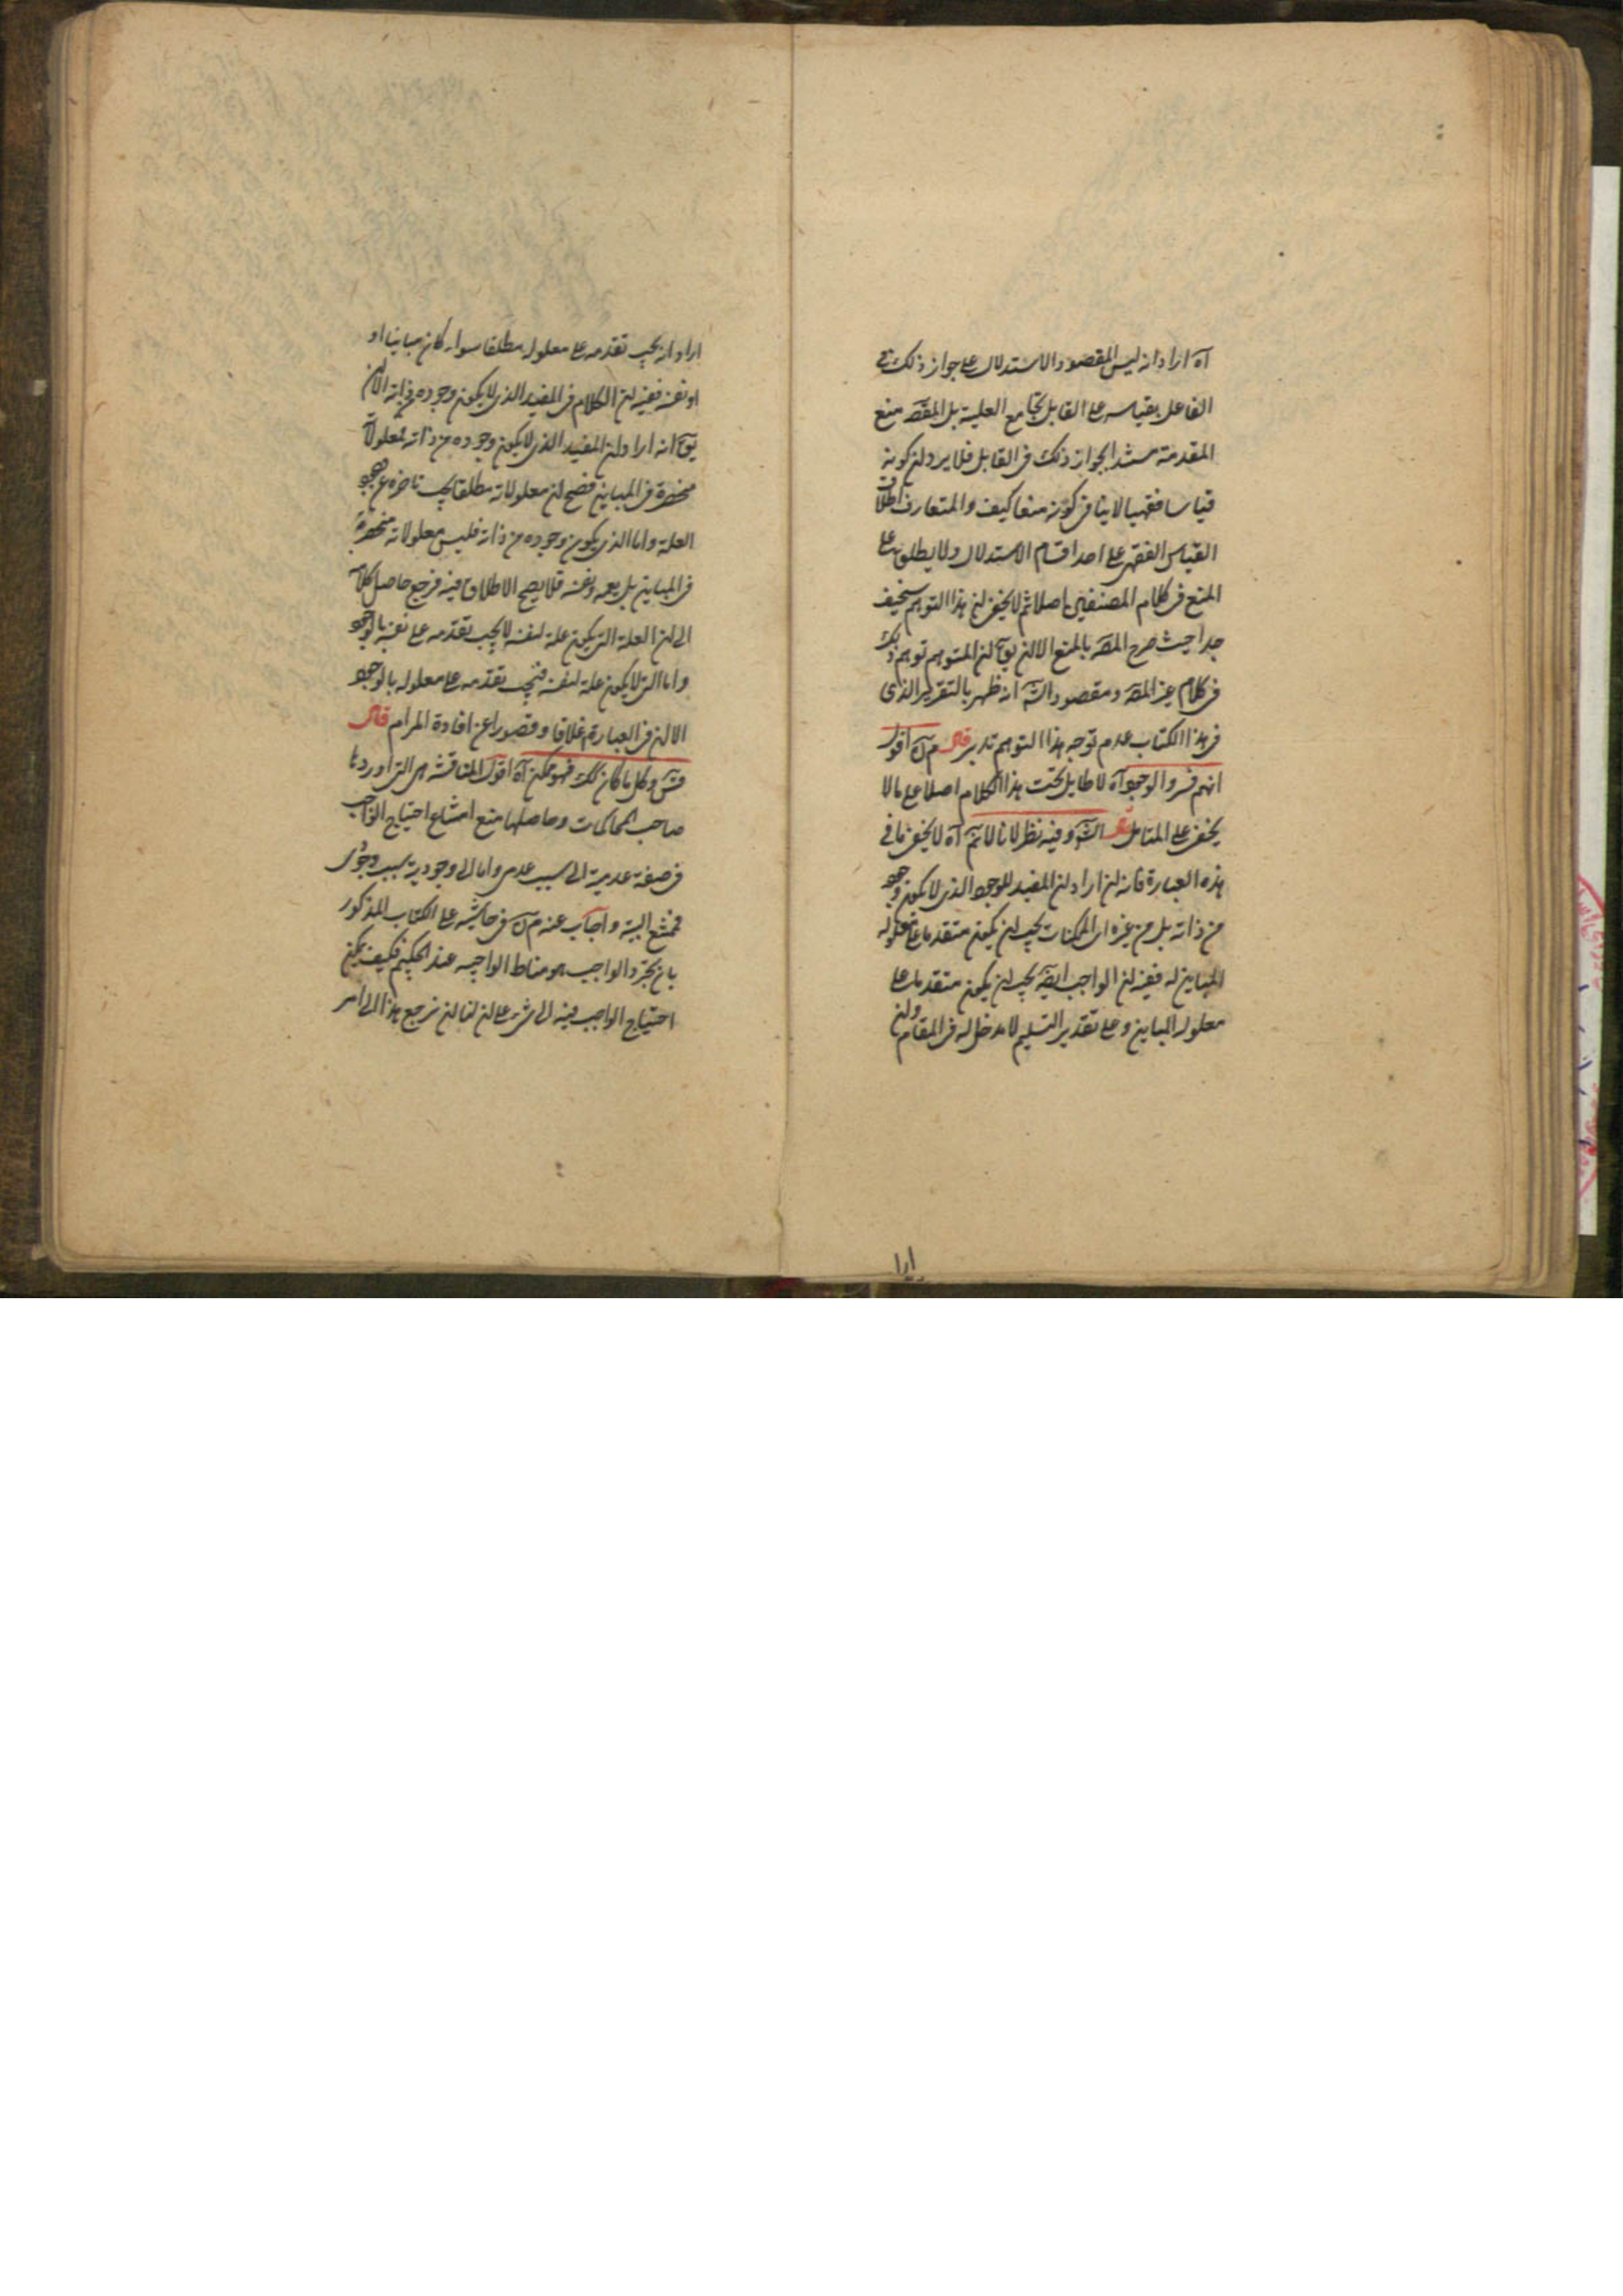 آه اراد انه ليس المقصود الاستدلال على جواز ذلك في
الفاعل بقياسه على القابل بجامع العلية بل المقصـ منع
المقدمة مستندا بجواز ذلك في القابل فلا يرد ان كونه
قياسا فقهيا لا ينافي كونه منعا كيف والمتعارف اطلاق
القياس الفقهي على احد اقسام الاستدلال ولا يطلق على
المنع في كلام المصنفين اصلا ثم لا يخفى ان هذا التوهم سخيف
جدا حيث صرح المصـ بالمنع الا ان يقآ ان المتوهم توهم ذلك
في كلام غير المصـ ومقصود الشـ انه ظهر بالتقرير الذي
في هذا الكتاب عدم توجه هذا التوهم تدبر قال م ره اقول
انهم فسروا الوجود آه لا طايل تحت هذا الكلام اصلا على ما لا
يخفى على المتامل الشـ وفيه نظر لانا لا نم آه لا يخفى ما في
هذه العبارة فانه ان اراد ان المفيد للوجود الذي لا يكون وجوده
من ذاته بل من غيره اي الممكنات يجب ان يكون متقدما على معلوله
المباين له ففيه ان الواجب ايضـ يجب ان يكون متقدما على
معلوله المباين وعلى تقدير التسليم لا مدخل له في المقام وان
ارا
اراد انه يجب تقدمه على معلوله مطلقا سواء كان مباينا او
او نفسه ففيه ان الكلام في المفيد الذي لا يكون وجوده من ذاته الا ان
يقآ انه اراد ان المفيد الذي لا يكون وجوده من ذاته معلولاته
منحصرة في المباين فصح ان معلولاته مطلقا يجب تاخره عن وجود
العلة واما الذي يكون وجوده من ذاته فليس معلولاته منحصرة
في المباين بل يعمه ونفسه فلا يصح الاطلاق فيه فرجع حاصل كلامه
الى ان العلة التي يكون علة لنفسه لا يجب تقدمه على نفسه بالوجود
واما التي لا يكون علة لنفسه فيجب تقدمه على معلوله بالوجود
الا ان في العبارة اغلاقا وقصورا عن افادة المرام قال
وكل ما كان كك فهو ممكن آه اقول المناقشة هي التي اوردها
صاحب المحاكمات وحاصلها منع امتناع احتياج الواجب
في صفة عدمية الى سبب عدمي واما الى وجودية بسبب وجودي
فممتنع البتة واجاب عنه م ره في حاشيته على الكتاب المذكور
بان تجرد الواجب هو مناط الواجبية عند الحكيم فكيف يمكن
احتياج الواجب فيه الى شيء على ان لنا ان نرجع هذا الى امر